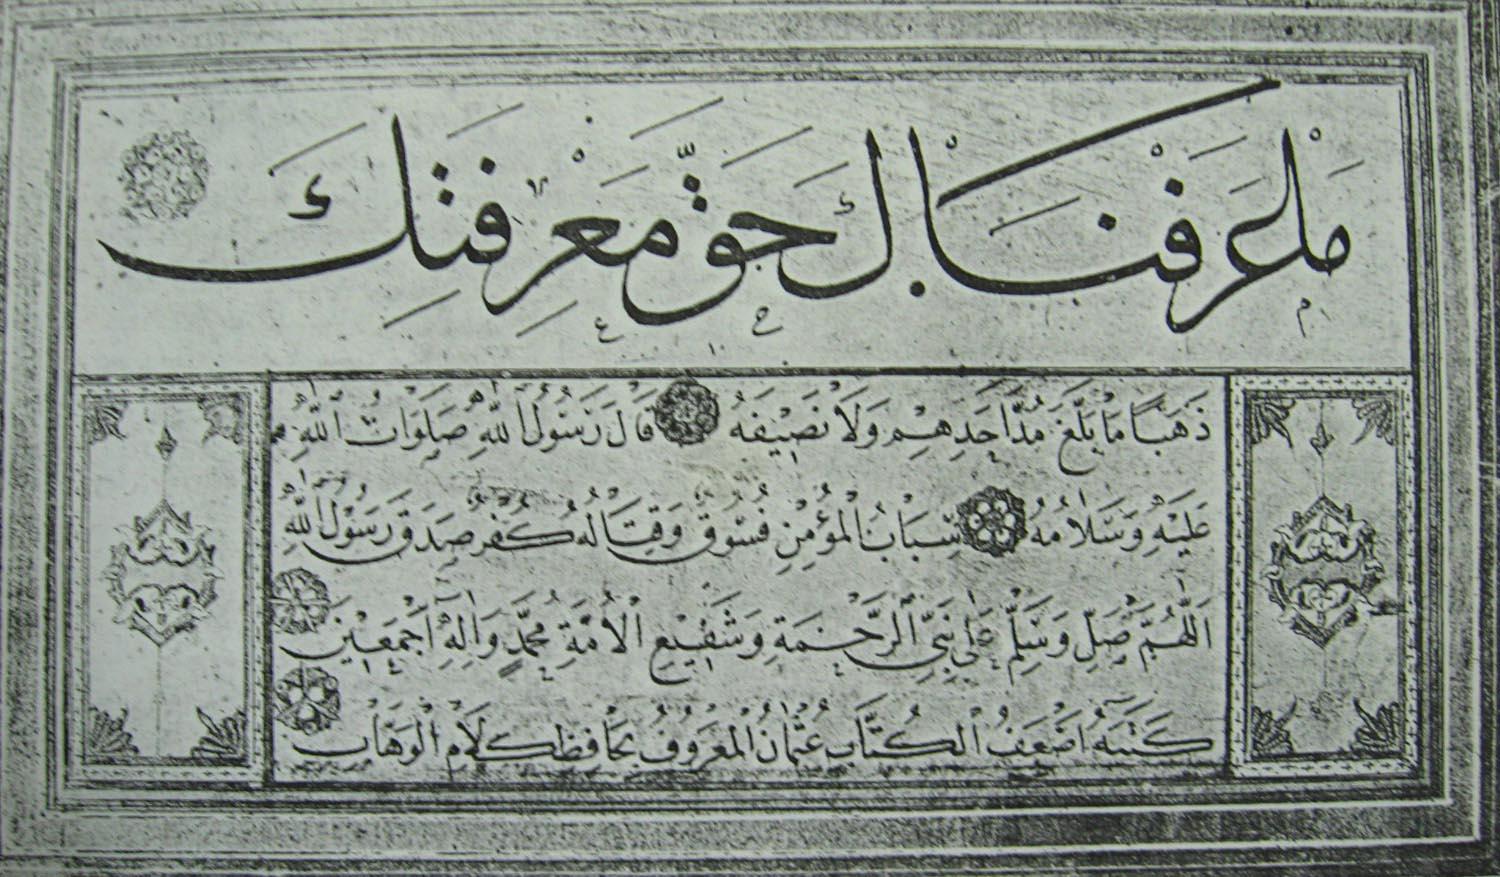 مَا عَرَفْنَاكَ حَقَّ مَعْرِفَتِكَ
ذَهَبًا مَا بَلَغَ مُدَّ أَحَدِهِمْ وَلَا نَصِيفَهُ قَالَ رَسُولُ اللهِ صَلَوَاتُ اللهِ
عَلَيْهِ وَسَلَامُهُ سِبَابُ الْمُؤْمِنِ فُسُوقٌ وَقِتَالُهُ كُفْرٌ صَدَقَ رَسُولُ اللهِ
اَللّٰهُمَّ صَلِّ وَسَلِّمْ عَلَى نَبِيِّ الرَّحْمَةِ وَشَفِيعِ الْأُمَّةِ مُحَمَّدٍ وَآلِهِ أَجْمَعِينَ
كَتَبَهُ أَضْعَفُ الْكُتَّابِ عُثْمَانُ الْمَعْرُوفُ بِحَافِظِ كَلَامِ الْوَهَّابِ